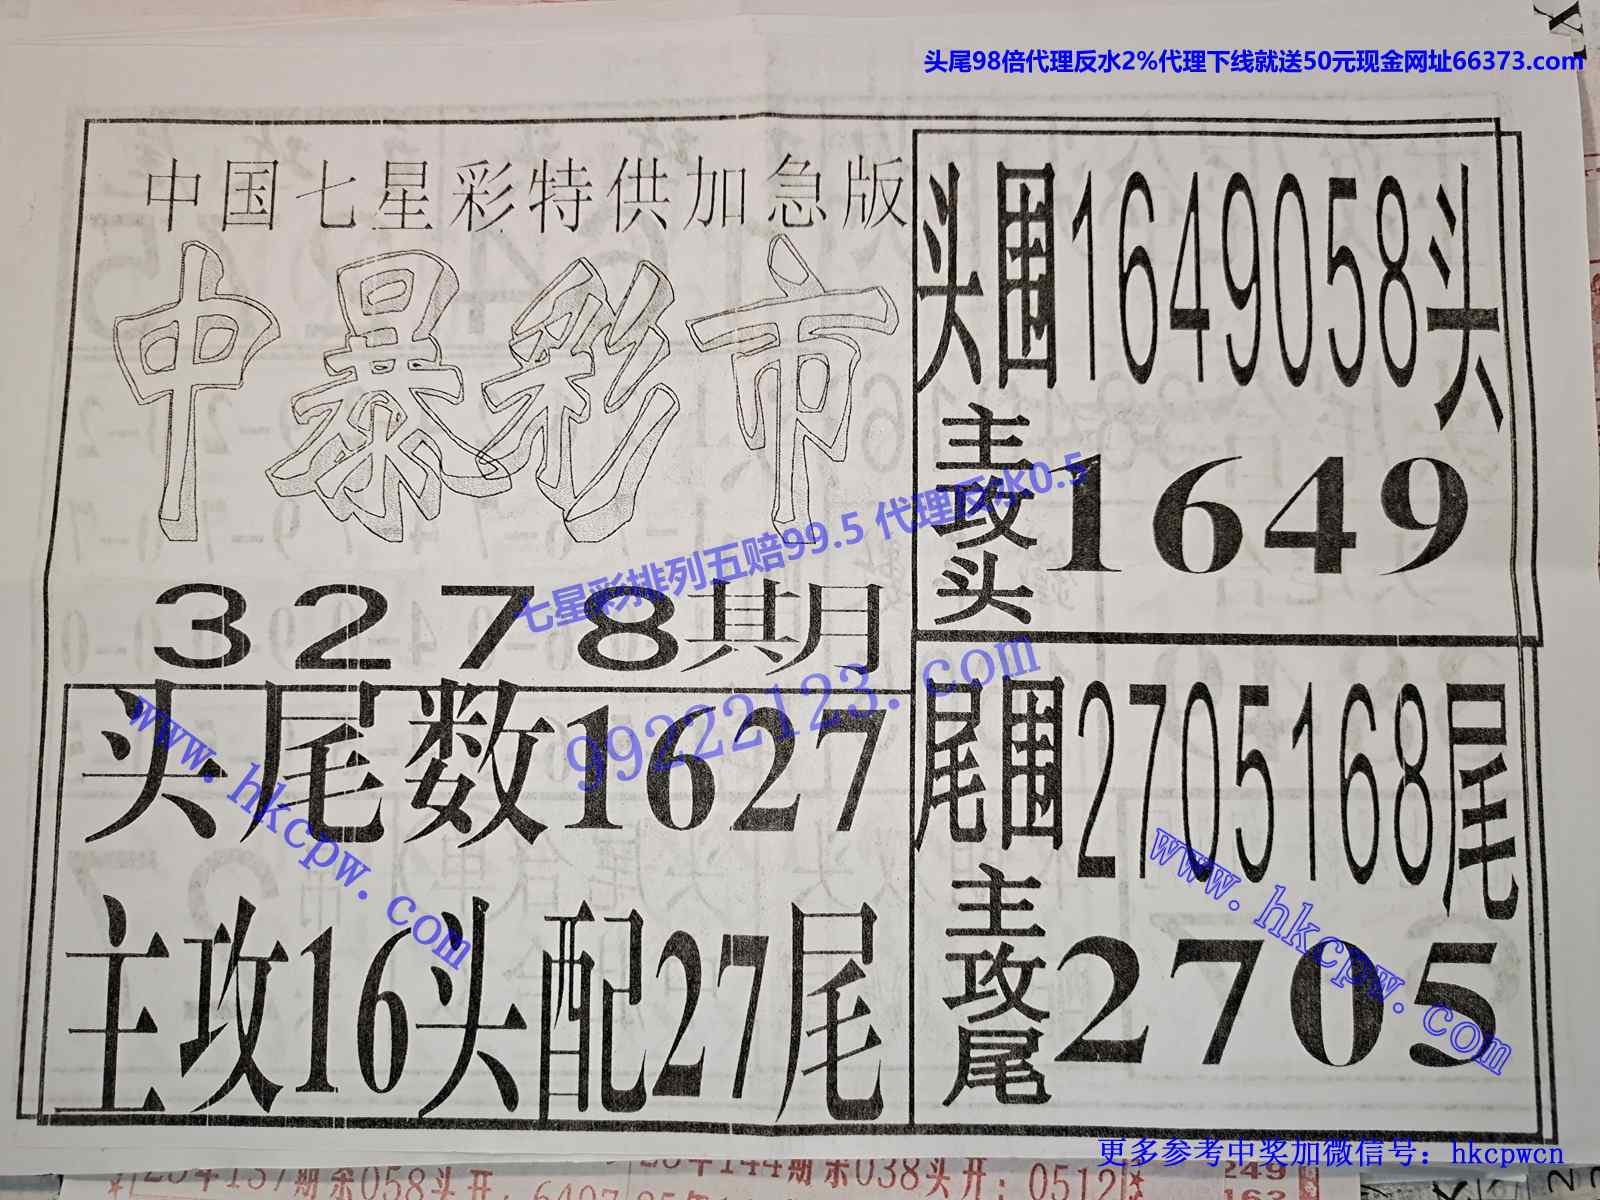 头尾98倍代理反水2%代理下线就送50元现金网址66373.com
中国七星彩特供加急版
中暴彩市
3278其月
头尾数1627
主攻16头配27尾
头围1649058头
主攻头1649
尾围2705168尾
主攻尾2705
七星彩排列五赔99.5 代理反水0.5
99222123.com
www.hkcpw.com
www.hkcpw.com
更多参考中奖加微信号：hkcpwcn